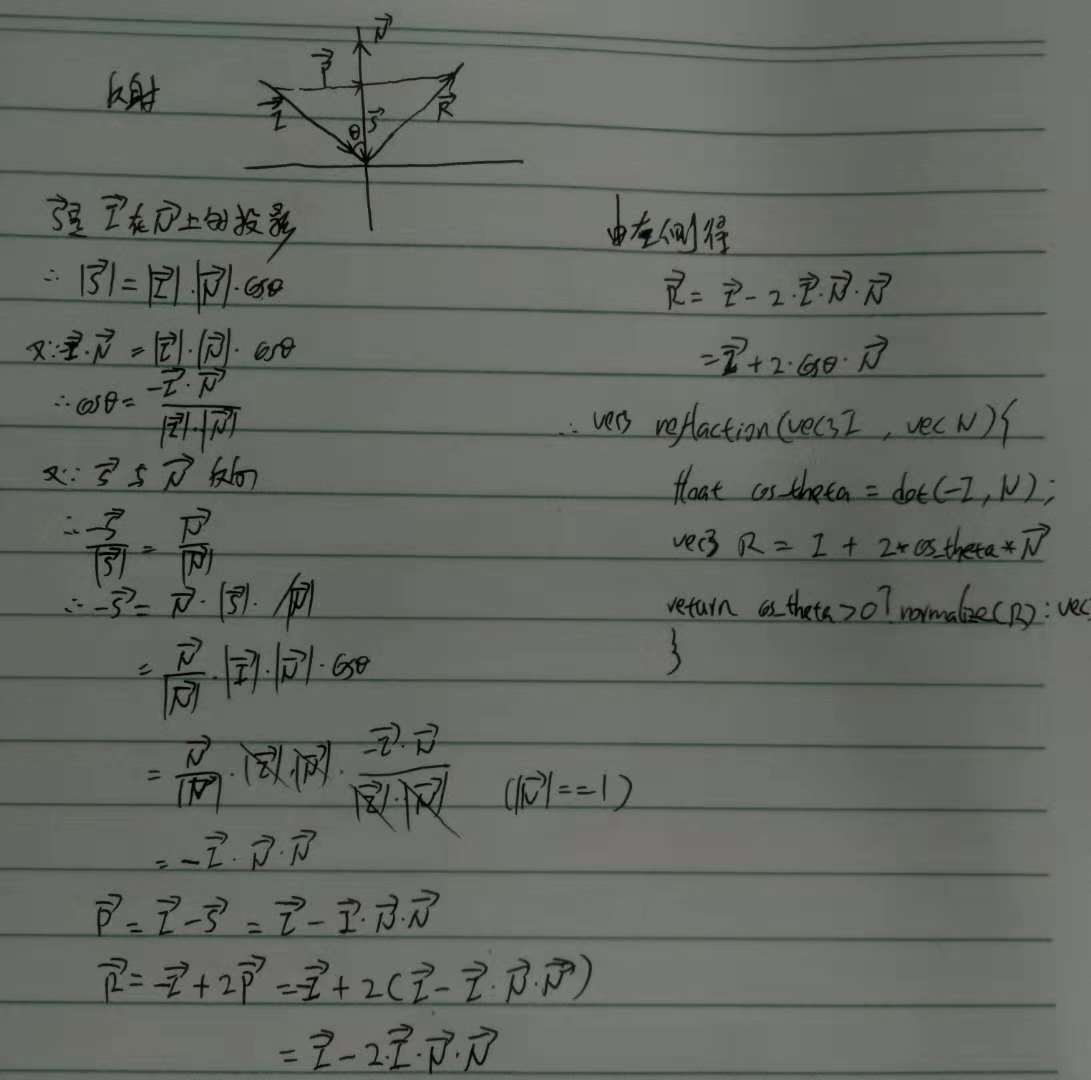 反射
N⃗
P⃗
I⃗
θ
S⃗
R⃗
S⃗是 I⃗在N⃗上的投影
∴ |S⃗| = |I⃗|·|N⃗|·cosθ
又∵ -I⃗·N⃗ = |I⃗|·|N⃗|·cosθ
∴ cosθ = -I⃗·N⃗ / |I⃗|·|N⃗|
又∵ S⃗ 与 N⃗ 反向
∴ -S⃗ / |S⃗| = N⃗ / |N⃗|
∴ -S⃗ = N⃗·|S⃗|·/|N⃗|
= N⃗ / |N⃗| · |I⃗|·|N⃗|·cosθ
= N⃗ / |N⃗| · |I⃗|·|N⃗| · -I⃗·N⃗ / |I⃗|·|N⃗| (|N⃗|==1)
= -I⃗·N⃗·N⃗
P⃗ = I⃗ - S⃗ = I⃗ - I⃗·N⃗·N⃗
R⃗ = -I⃗ + 2P⃗ = -I⃗ + 2(I⃗ - I⃗·N⃗·N⃗)
= I⃗ - 2·I⃗·N⃗·N⃗
由左侧得
R⃗ = I⃗ - 2·I⃗·N⃗·N⃗
= I⃗ + 2·cosθ·N⃗
∴ vec3 reflaction(vec3 I , vec N){
float cos_theta = dot(-I, N);
vec3 R = I + 2*cos_theta*N⃗
return cos_theta>0? normalize(R) :
}